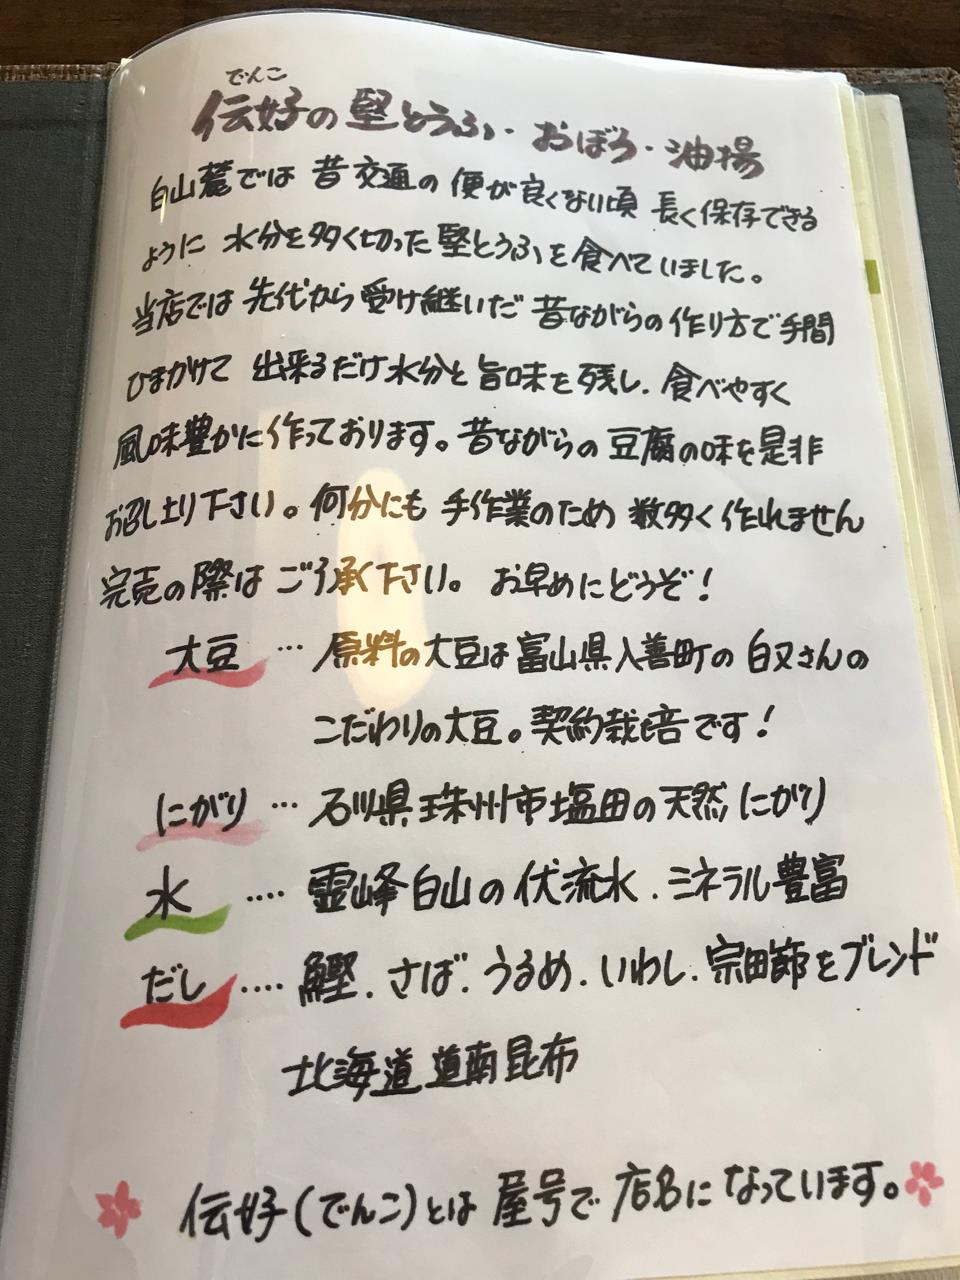 でんこ
伝好の堅とうふ・おぼろ・油揚
白山麓では 昔 交通の 便が良くない頃 長く保存できる
ように 水分を多く切った 堅とうふを食べていました。
当店では 先代から 受け継いだ 昔ながらの 作り方で手間
ひまかけて 出来るだけ水分と旨味を残し、食べやすく
風味豊かに作っております。昔ながらの 豆腐の味を是非
お召し上り下さい。何分にも 手作業のため 数多く作れません
完売の際は ご了承下さい。 お早めにどうぞ!
大豆 … 原料の大豆は富山県入善町の 白又さんの
こだわりの大豆。契約栽培です!
にがり … 石川県珠州市塩田の天然にがり
水 ‥‥ 霊峰白山の伏流水、ミネラル豊富
だし ‥‥ 鰹、さば、うるめ、いわし、宗田節をブレンド
北海道道南昆布
伝好(でんこ)とは 屋号で 店名になっています。